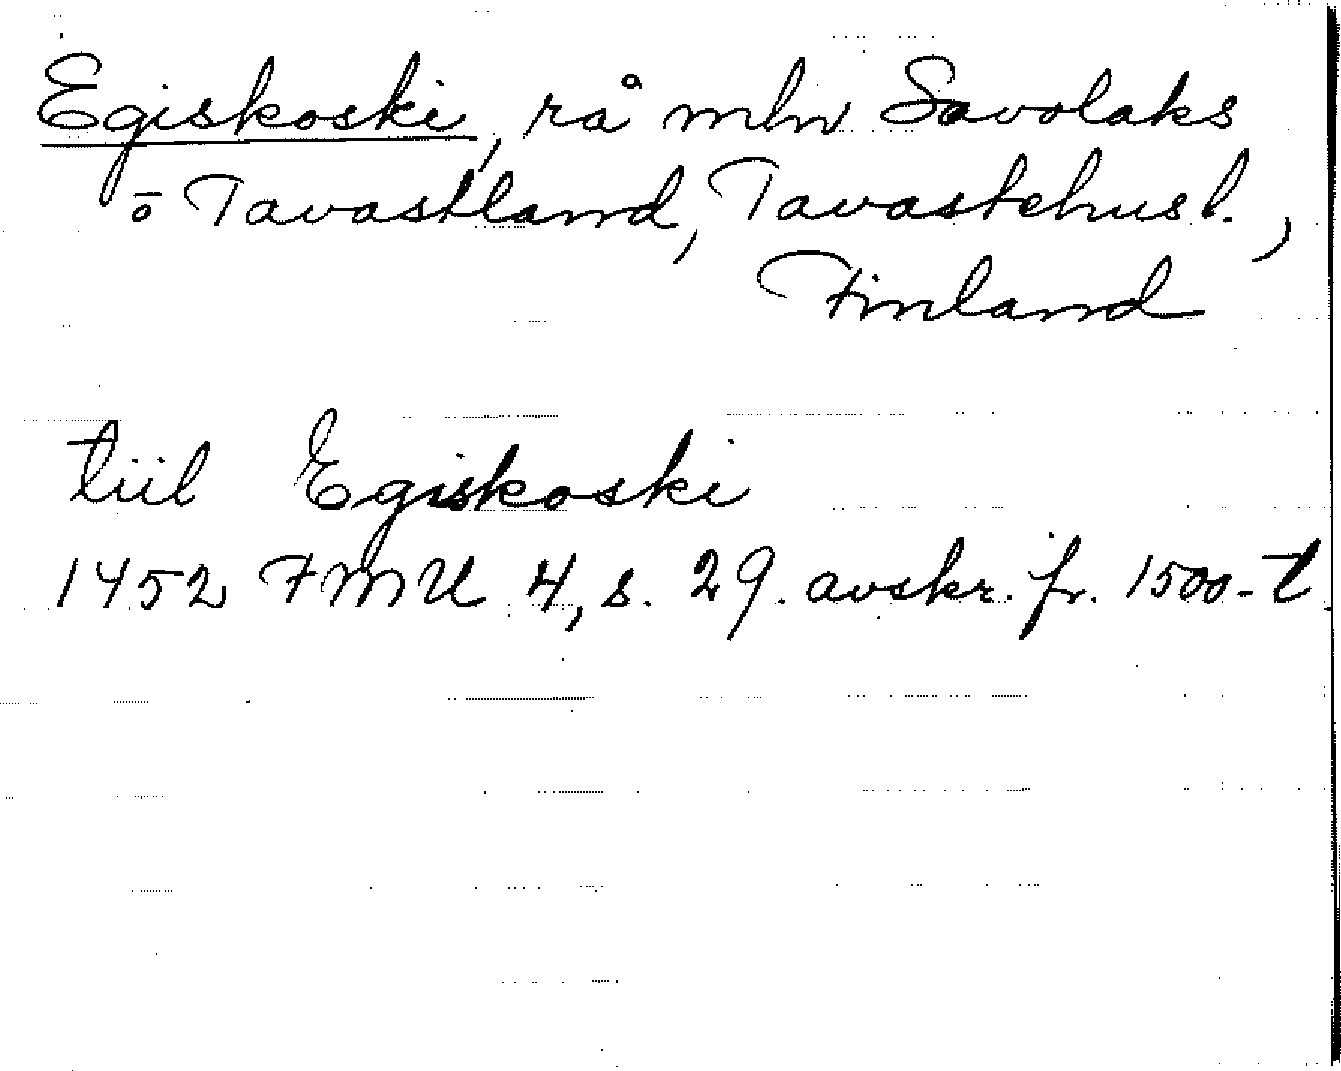 Egiskoski, rå mln Savolaks
o Tavastland, Tavastehusl.,
Finland
tiil Egiskoski
1452 FMU 4, s. 29. avskr. fr. 1500-t.